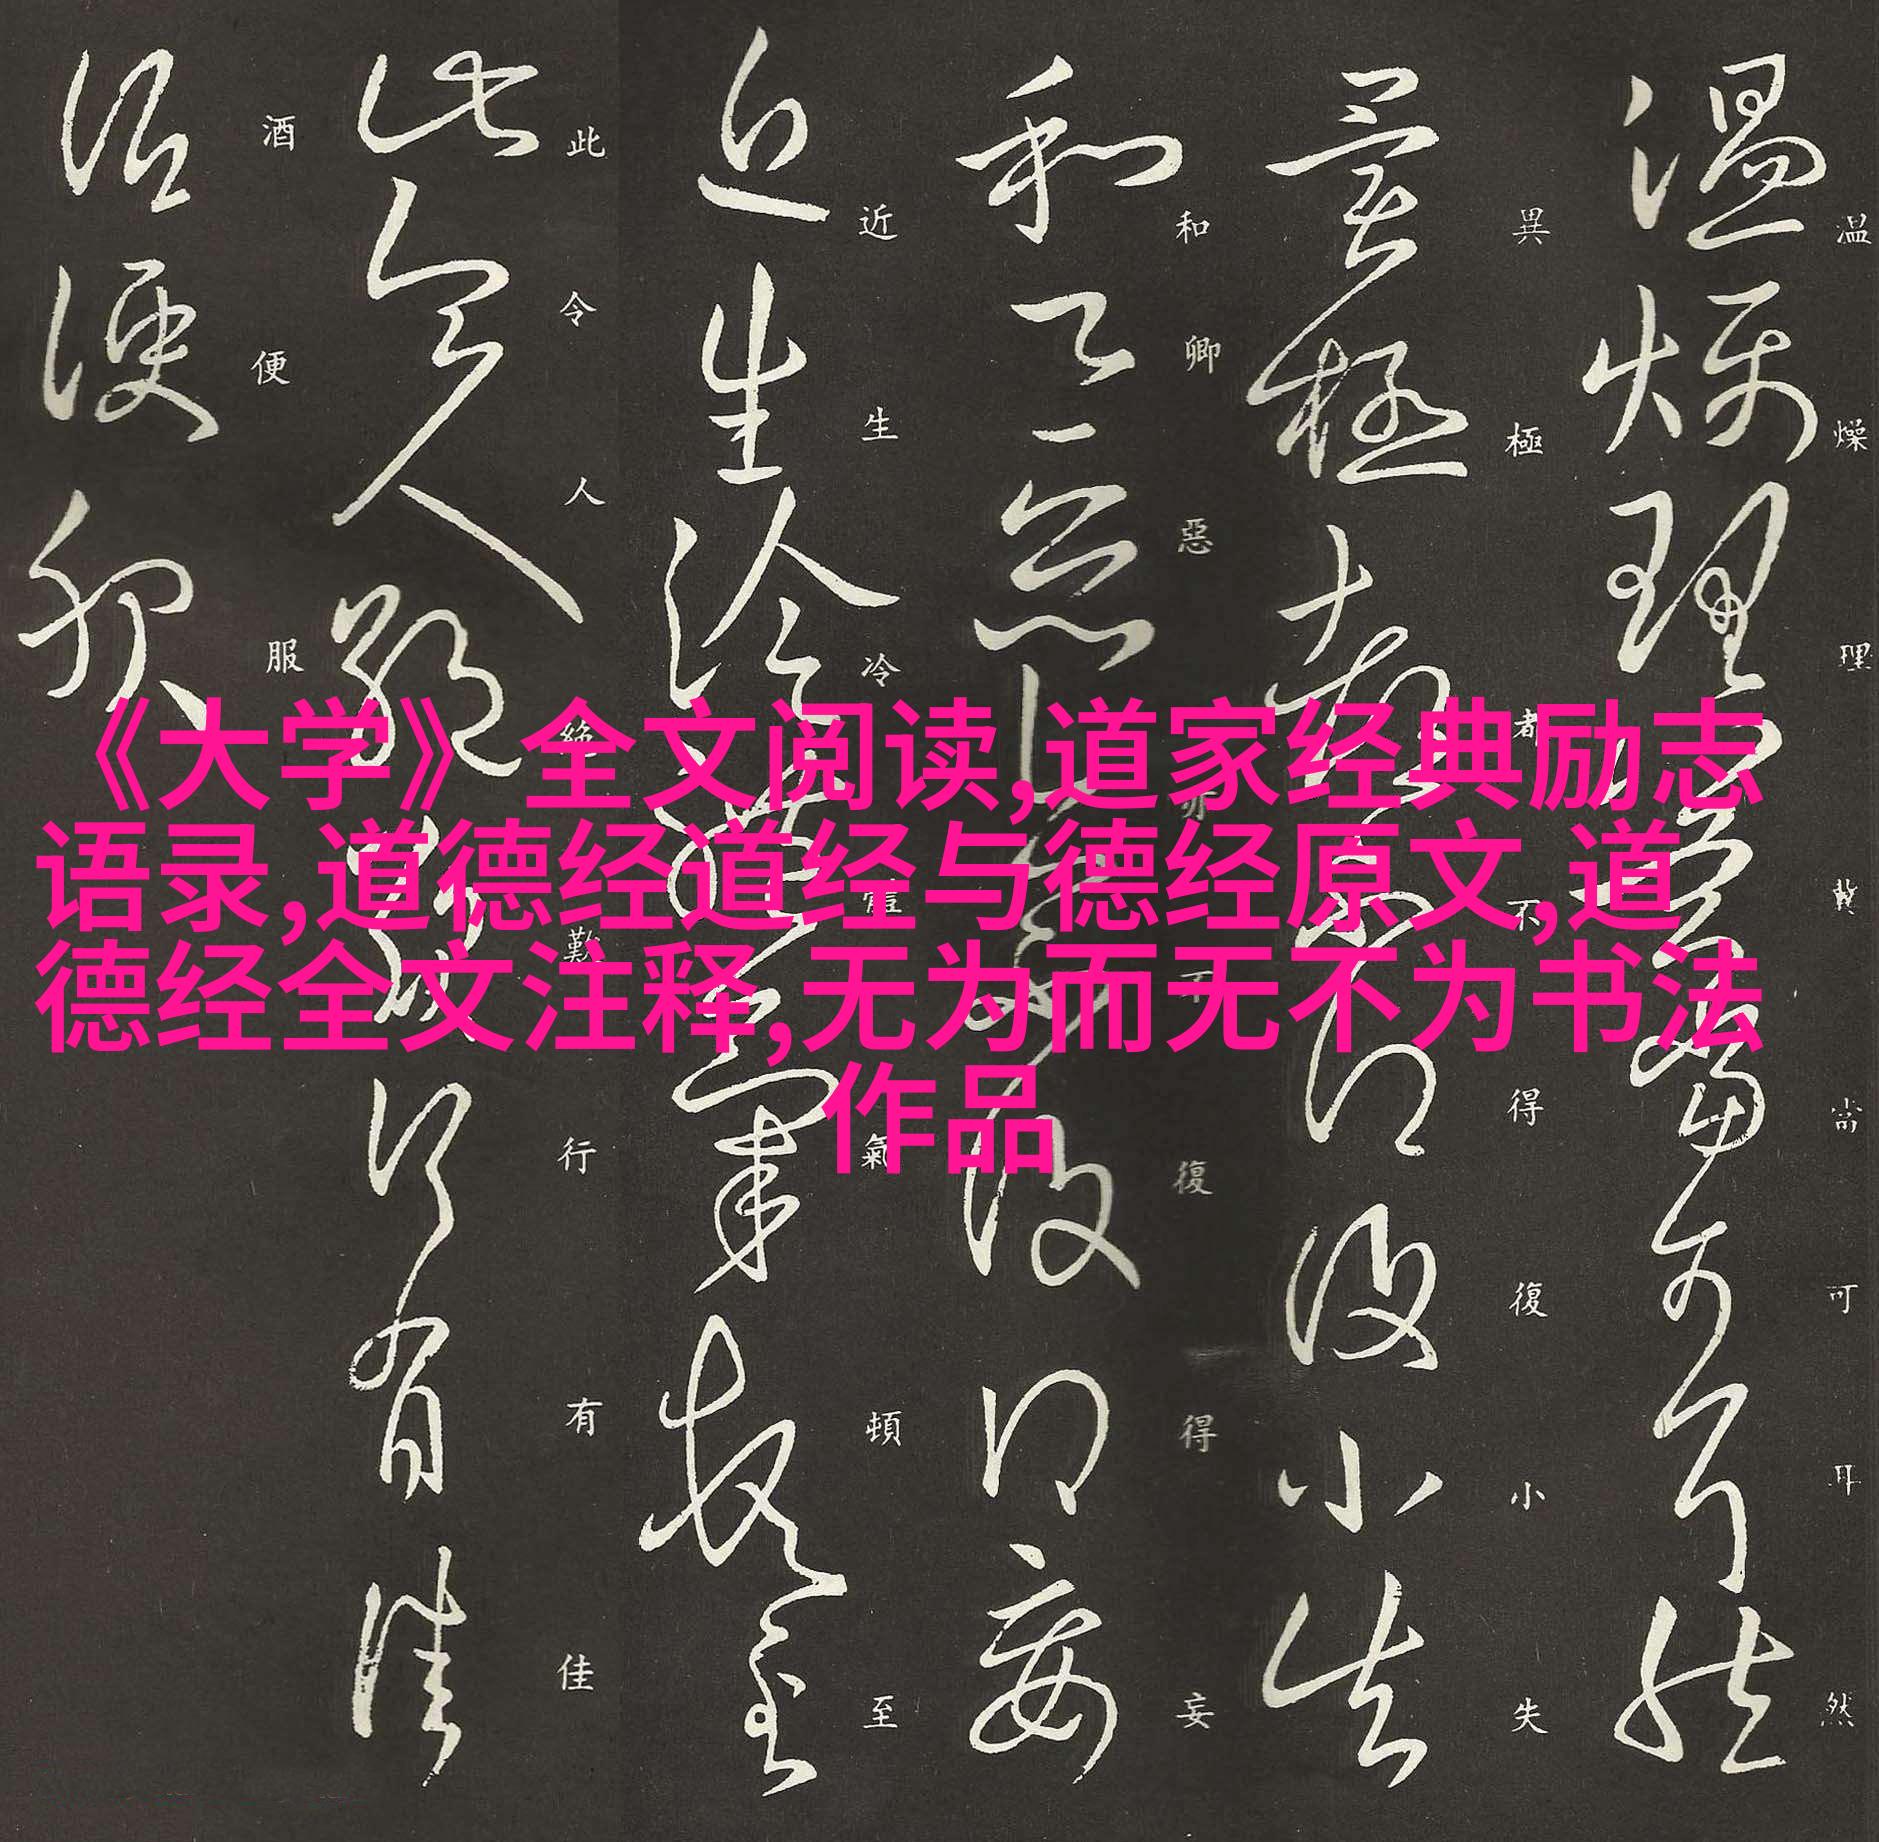 温燥理當可耳然
異極都不得復小失
和卿惡亦不復得妄
近生冷氣頓至
此令人絶行有佳
酒便服
《大学》全文阅读,道家经典励志
语录,道德经道经与德经原文,道
德经全文注释,无为而无不为书法
作品